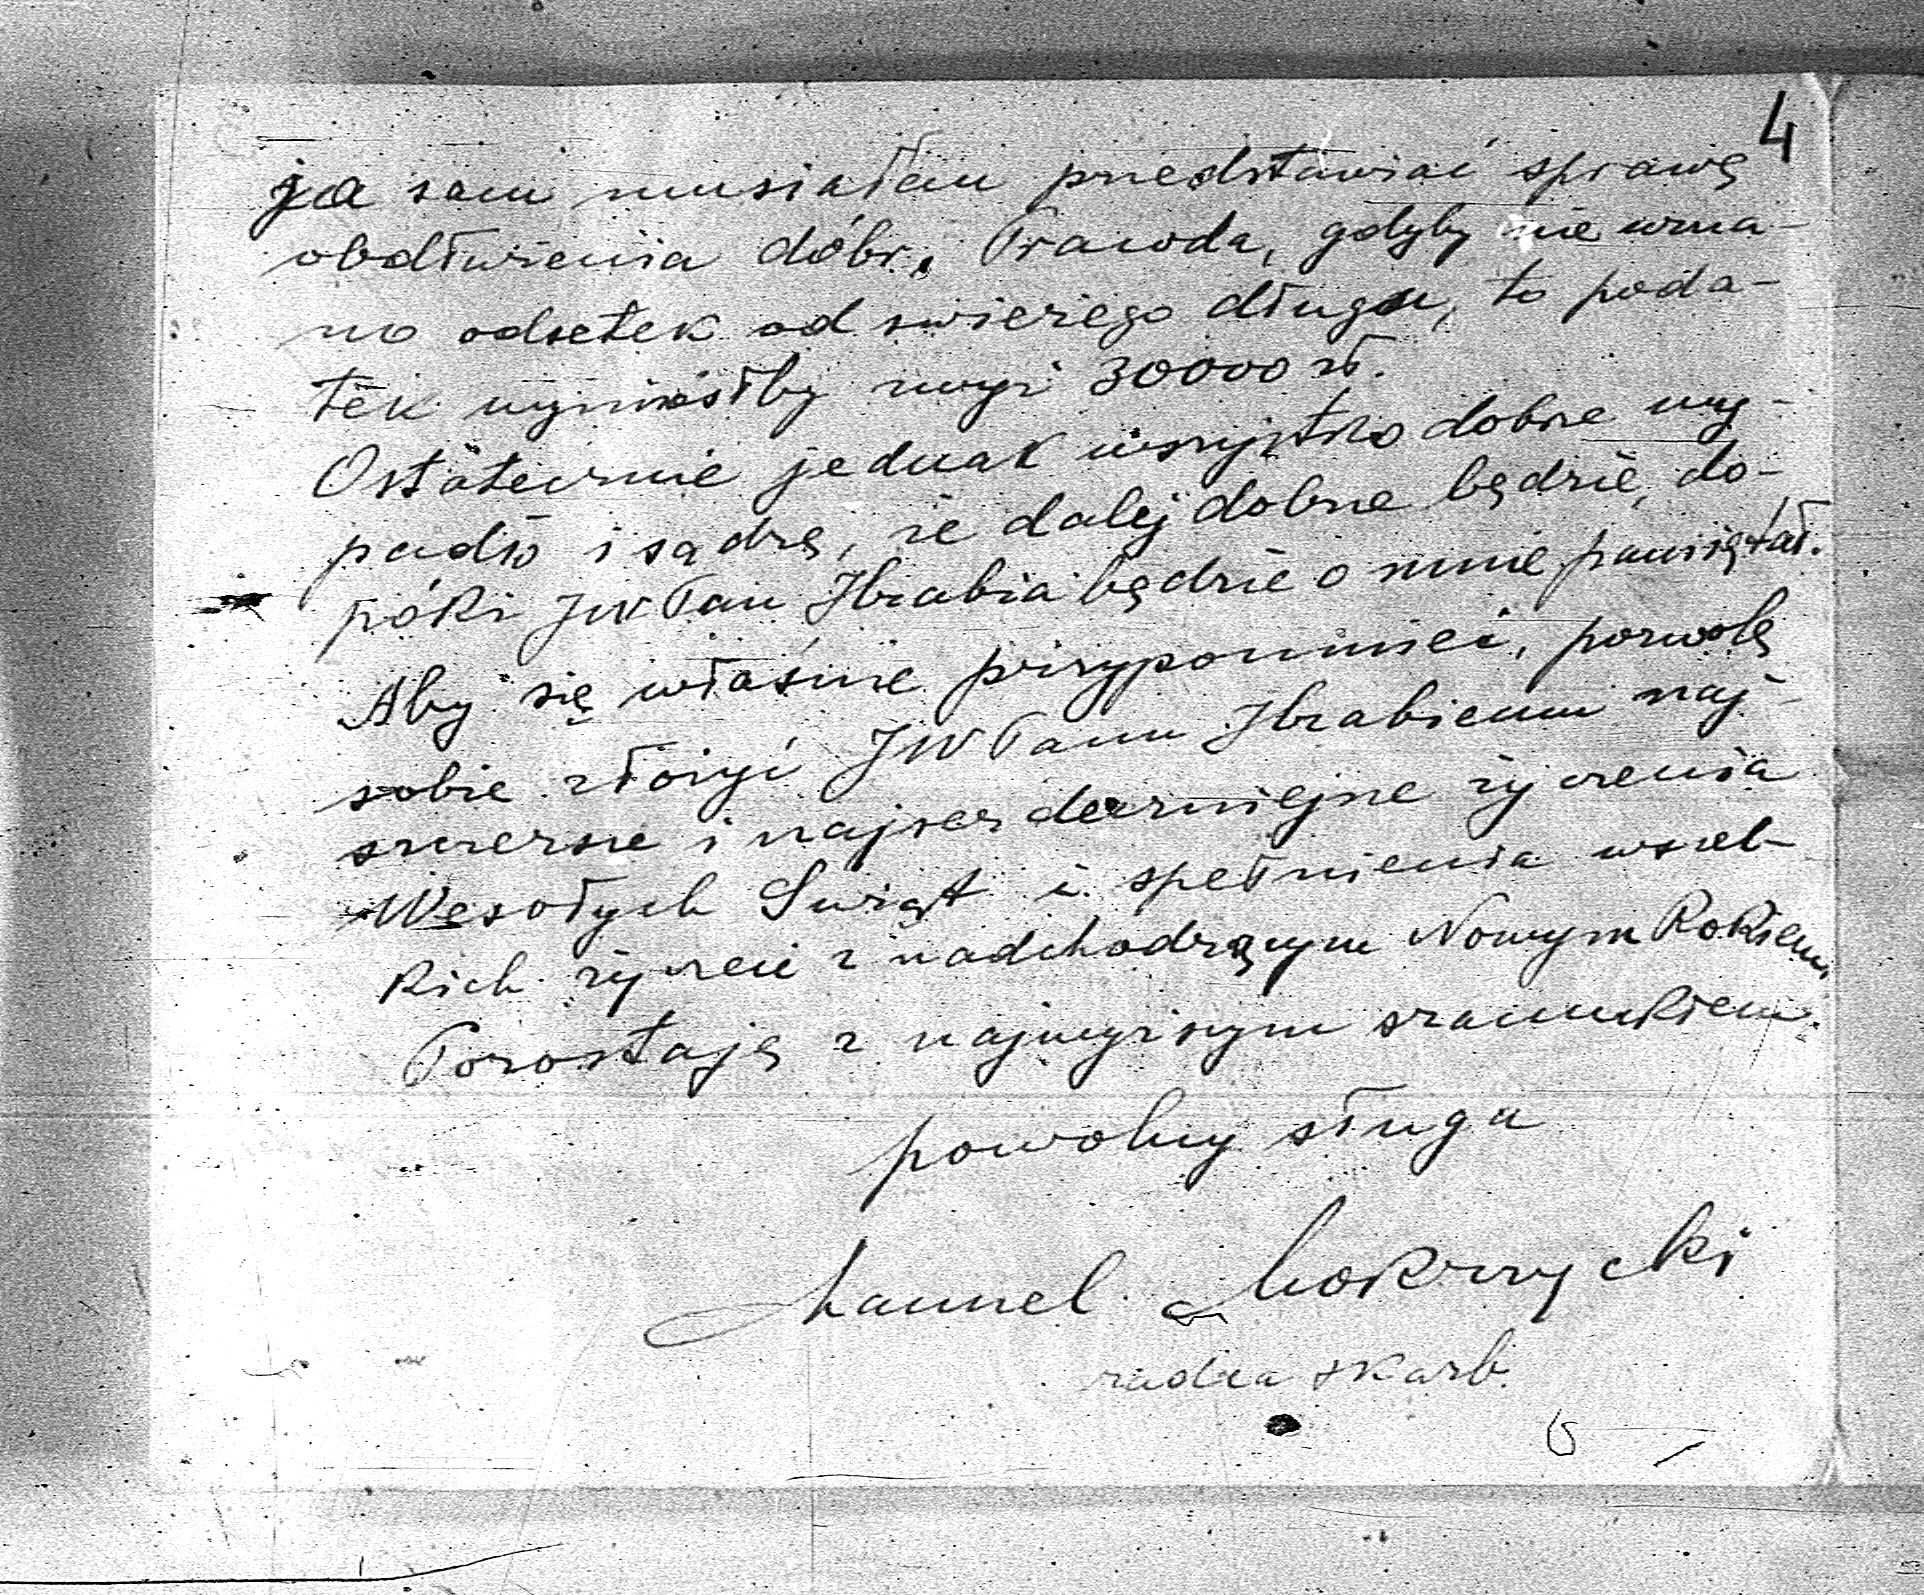 4
ja sam musiałem przedstawiać sprawę
obdłużenia dóbr. Prawda, gdyby nie uzna-
no odsetek od świeżego długu, to poda-
tek wyniósłby wyżej 30000 zł.
Ostatecznie jednak wszystko dobrze wy-
padło i sądzę, że dalej dobrze będzie, do-
póki JWPan Hrabia będzie o mnie pamiętał.
Aby się właśnie przypomnieć, pozwolę
sobie złożyć JWPanu Hrabiemu naj-
szczersze i najserdeczniejsze życzenia
Wesołych Świąt i spełnienia wszel-
kich życzeń z nadchodzącym Nowym Rokiem.
Pozostaję z najwyższym szacunkiem
powolny sługa
Mokrzycki
radca skarb.